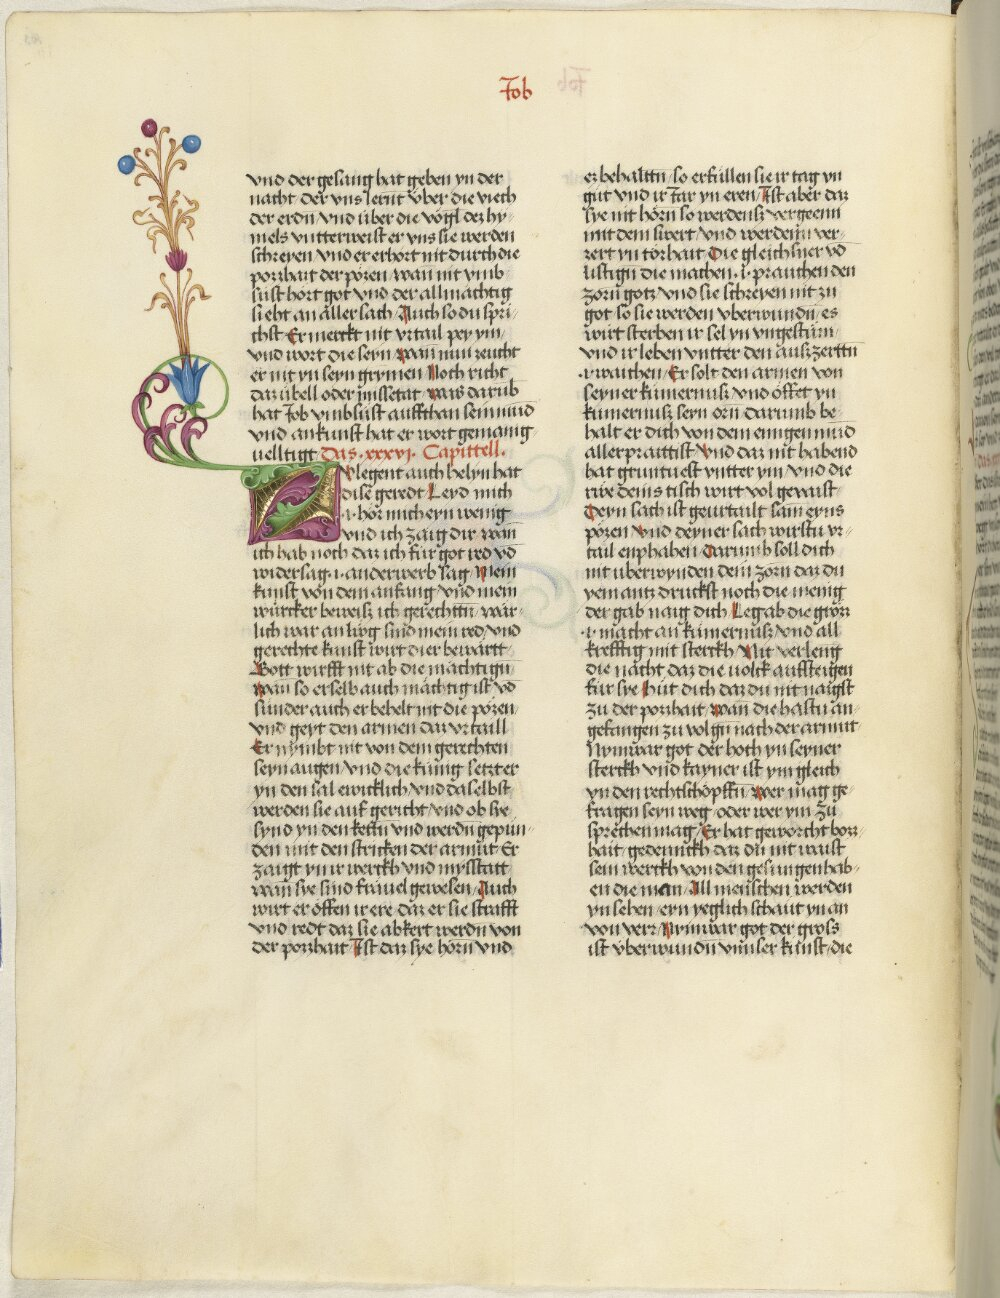 Job
vnd der gesang hat geben yn der
nacht der vns lernt vber die viech
der erdn vnd vber die vögl des hy-
mels vntterweist er vns sie werden
schreyen vnd er erhort nit durch die
poshait der pözen wan nit vmb-
süst hört got vnd der allmächtig
sieht an aller sach Auch so du spri-
chst Er merckt nit vrtail pey ym
vnd wort die seyn wan nun zeucht
er nit yn seyn grymen Noch richt
das übell oder missetat was darüb
hat Job vmbsüst auffthan sein mud
vnd an kunst hat er wort gemanig-
uelltigt Das .xxxvj. Capittell.
legent auch helyu hat
dise geredt Leyd mich
.i. hör mich eyn wenig
vnd ich zaig dir wan
ich hab noch das ich für got red vd
widersag .i. anderwerb sag Mein
kunst von dem anfang vnd mein
würcker beweis ich gerechttn war-
lich war an lwg sind mein red vnd
gerechte kunst wirt dier bewärtt
Gott wirfft nit ab die mächtign
wan so er selb auch mächtig ist vd
sunder auch er behelt nit die pözen
vnd geyt den armen das vrtaill
Er nymbt nit von dem gerechten
seyn augen vnd die künig setzt er
yn den sal ewicklich vnd daselbst
werden sie auf gericht vnd ob sie
synd yn den kettn vnd werdn gepun-
den mit den stricken der armüt Er
zaigt yn ir werckh vnd mysstatt
wan sye sind fräuel gewesen Auch
wirt er offen ir ere das er sie strafft
vnd redt das sie abkert werdn von
der poshait Ist das sye hörn vnd
es behalttn so erfüllen sie ir tag yn
gut vnd ir Jar yn eren Ist aber das
sye nit hörn so werdens vergeenn
mit dem swert vnd werden ver-
zert yn torhait Die gleichsner vd
listign die machen .i. prauchen den
zorn gotz vnd sie schreyen nit zu
got so sie werden vberwundn es
wirt sterben ir sel yn vngestüm
vnd ir leben vntter den auszerttn
.i. waichen Er solt den armen von
seyner kumernus vnd öffet yn
kumernus sein orn darumb be-
halt er dich von dem enigen mund
aller praittist vnd das nit habend
hat gruntuest vntter ym vnd die
rwe deins tisch wirt vol gemast
Deyn sach ist geurtailt sam eyns
pözen vnd deyner sach wirstu vr-
tail enphahen Darumb soll dich
nit vberwynden dem zorn das du
yemantz druckst noch die menig
der gab naig dich Leg ab die gröss
.i. macht an kumernus vnd all
krefftig mit sterckh Nit verleng
die nacht das die volck auffsteigen
für sye Hüt dich das du nit naigst
zu der poshait wan die hastu an-
gefangen zu volgn nach der armut
Nymwar got der hoch yn seyner
sterckh vnd kayner ist ym gleich
yn den rechtschöpffn Wer mag ge-
fragen seyn weg oder wer ym zu
sprechen mag Er hat geworcht bos-
hait gedennckh das du nit waist
sein werckh von den gesungen hab-
en die man All menschen werden
yn sehen eyn yeglich schaut yn an
von verr Nymwar got der gross
ist vberwundn vnnser kunst die